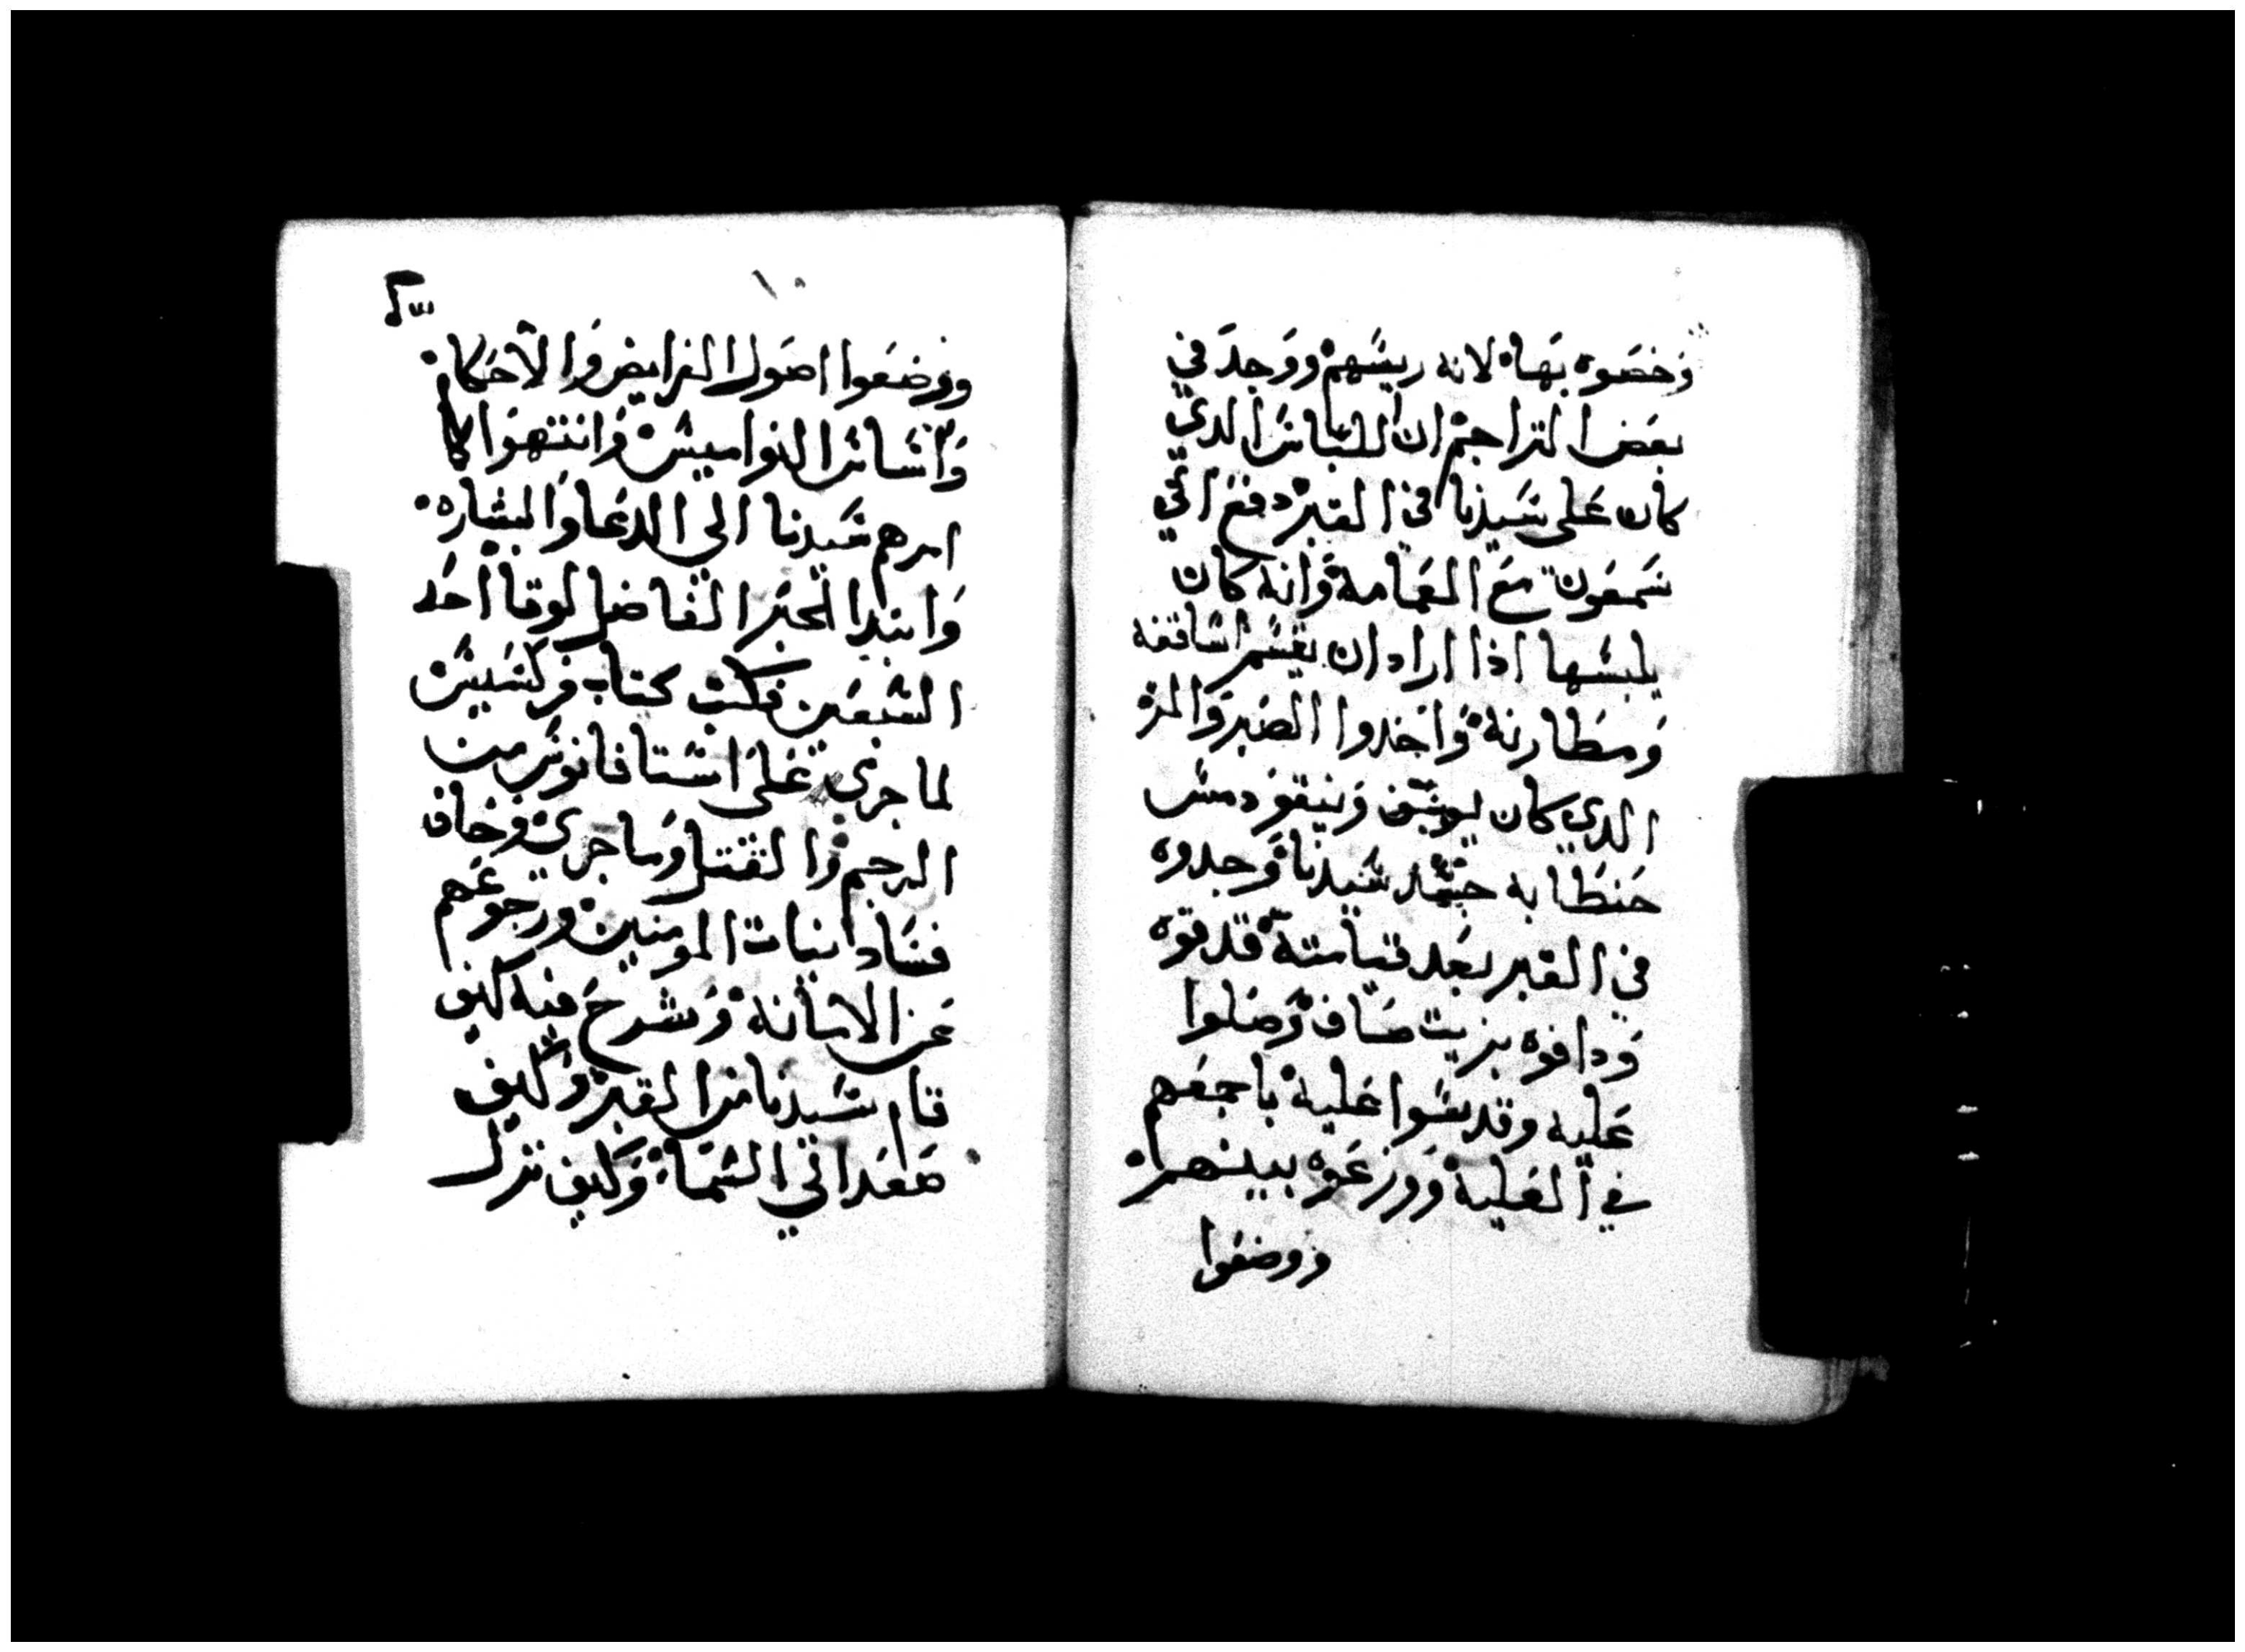 وخصوه بهاه لانه ريسهم ووجد في
بعض التراجم ان اللباس الدي
كان على سيدنا في القبر دفع الي
سمعون مع العمامه وانه كان
يلبسها اذا اراد ان يقسم اساقفه
ومطارنه واخدوا الصبر والمر
الدي كان يوسف ونيقودمس
حنطا به جسد سيدنا وجدوه
في القبر بعد قيامته فدقوه
ودافوه بزيت صاف وصلوا
عليه وقدسوا عليه باجمعهم
في العليه ووزعوه بينهم
ووضعوا
١٥
ووضعوا اصول الفرايض والاحكام
واساس النواميس وانتهوا كما
امرهم سيدنا الي الدعا والبشاره
وابتدا الحبر الفاضل لوقا احد
السبعين فكتب كتاب فركسيس
لما جري على استافانوس من
الرجم والقتل وما جري وخاف
فساد نيات المومنين ورجوعهم
عن الامانه وشرح فيه كيف
قام سيدنا من القبر وكيف
صعد الي السما وكيف نزل